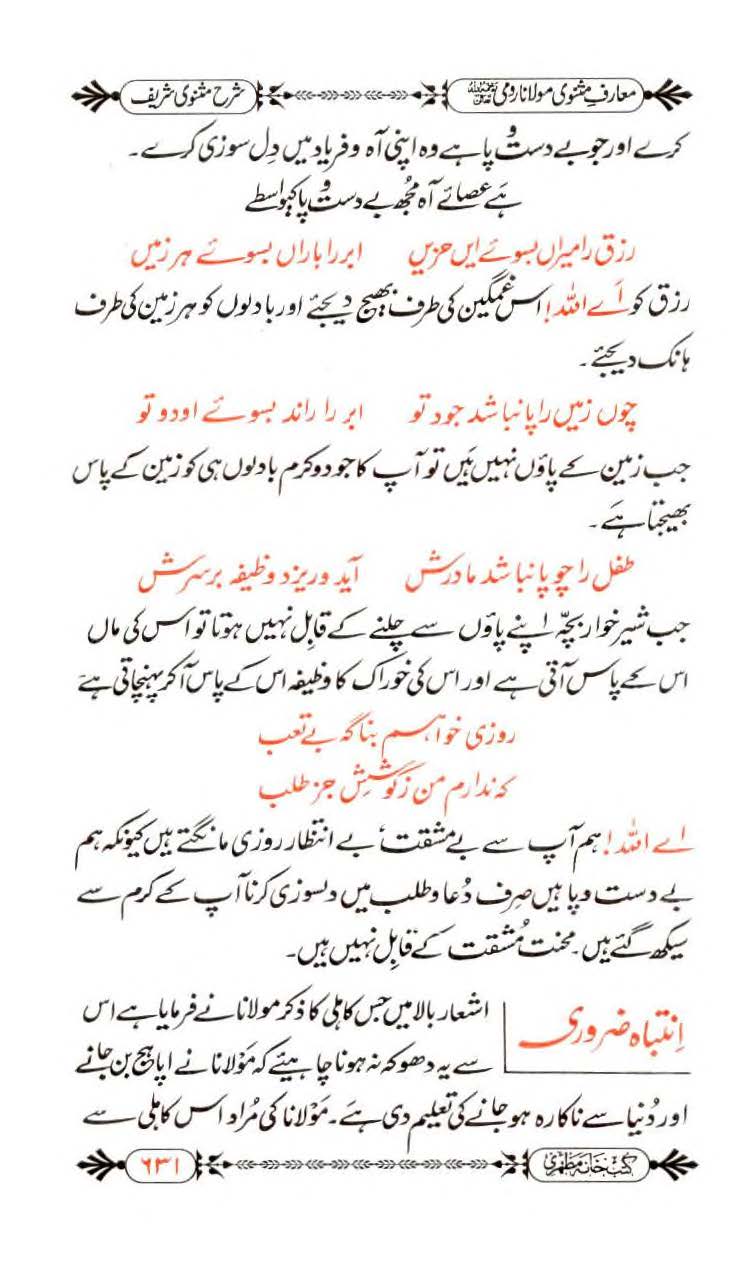 معارفِ مثنوی مولانا رومی رحمۃ اللہ علیہ
شرح مثنوی شریف
کرے اور جو بے دست و پا ہے وہ اپنی آہ و فریاد میں دِل سوزی کرے۔
ہَے عصائے آہ مجُھ بے دست و پا کیواسطے
رزق را میراں بسوئے ایں حزیں ابر را باراں بسوئے ہر زمیں
رزق کو اَے اللہ! اس غمگین کی طرف بھیج دیجئے اور بادلوں کو ہر زمین کی طرف
ہانک دیجئے۔
چوں زمیں را پا نباشد جود تو ابر را راند بسوئے او دو تو
جب زمین کے پاؤں نہیں ہَیں تو آپ کا جود و کرم بادلوں ہی کو زمین کے پاس
بھیجتا ہَے۔
طفل را چو پا نباشد مادرش آید و ریزد وظیفہ بر سرش
جب شیر خوار بچّہ اپنے پاؤں سے چلنے کے قابِل نہیں ہوتا تو اس کی ماں
اس کے پاس آتی ہے اور اس کی خوراک کا وظیفہ اس کے پاس آ کر پہنچاتی ہَے
روزی خواہم بناگہ بے تعب
کہ ندارم من ز کوشِش جز طلب
اے اللہ! ہم آپ سے بے مشقت، بے انتظار روزی مانگتے ہیں کیونکہ ہم
بے دست و پا ہیں صِرف دُعا و طلب میں دلسوزی کرنا آپ کے کرم سے
سیکھ گئے ہیں۔ محنت مُشقت کے قابِل نہیں ہیں۔
اِنتباہ ضروری
اشعار بالا میں جس کاہلی کا ذکر مولانا نے فرمایا ہے اس
سے یہ دھوکہ نہ ہونا چاہیئے کہ مَولانا نے اپاہج بن جانے
اور دُنیا سے ناکارہ ہو جانے کی تعلیم دی ہَے۔ مَولانا کی مُراد اس کاہلی سے
کتب خانہ مظہری
۶۳۱